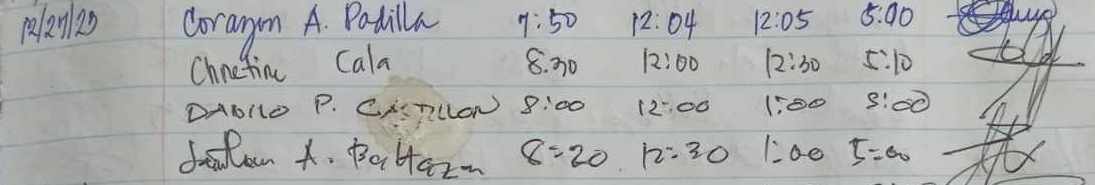 12/27/25 Corazon A. Padilla 7:50 12:04 12:05 5:00
Christine Cala 8:30 12:00 12:30 5:10
DANILO P. CASTILLON 8:00 12:00 1:00 5:00
A. Baltazar 8:20 12:30 1:00 5:00